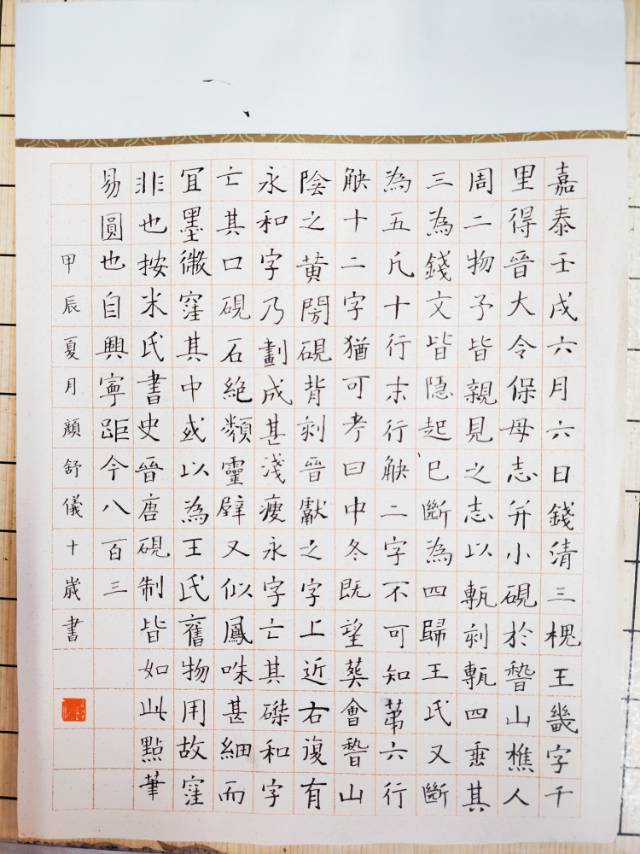 嘉泰壬戌六月六日錢清三槐王畿字千
里得晉大令保母志并小硯於稽山樵人
周二物予皆親見之志以甎刻甎四垂其
三為錢文皆隱起已斷為四歸王氏又斷
為五凡十行末行缺二字不可知第六行
缺十二字猶可考曰中冬既望葬會稽山
陰之黃閍硯背刻晉獻之字上近右復有
永和字乃劃成甚淺瘦永字亡其磔和字
亡其口硯石絕類靈璧又似鳳咮甚細而
宜墨微窪其中或以為王氏舊物用故窪
非也按米氏書史晉唐硯制皆如此點筆
易圓也自興寧距今八百三
甲辰夏月顏舒儀十歲書